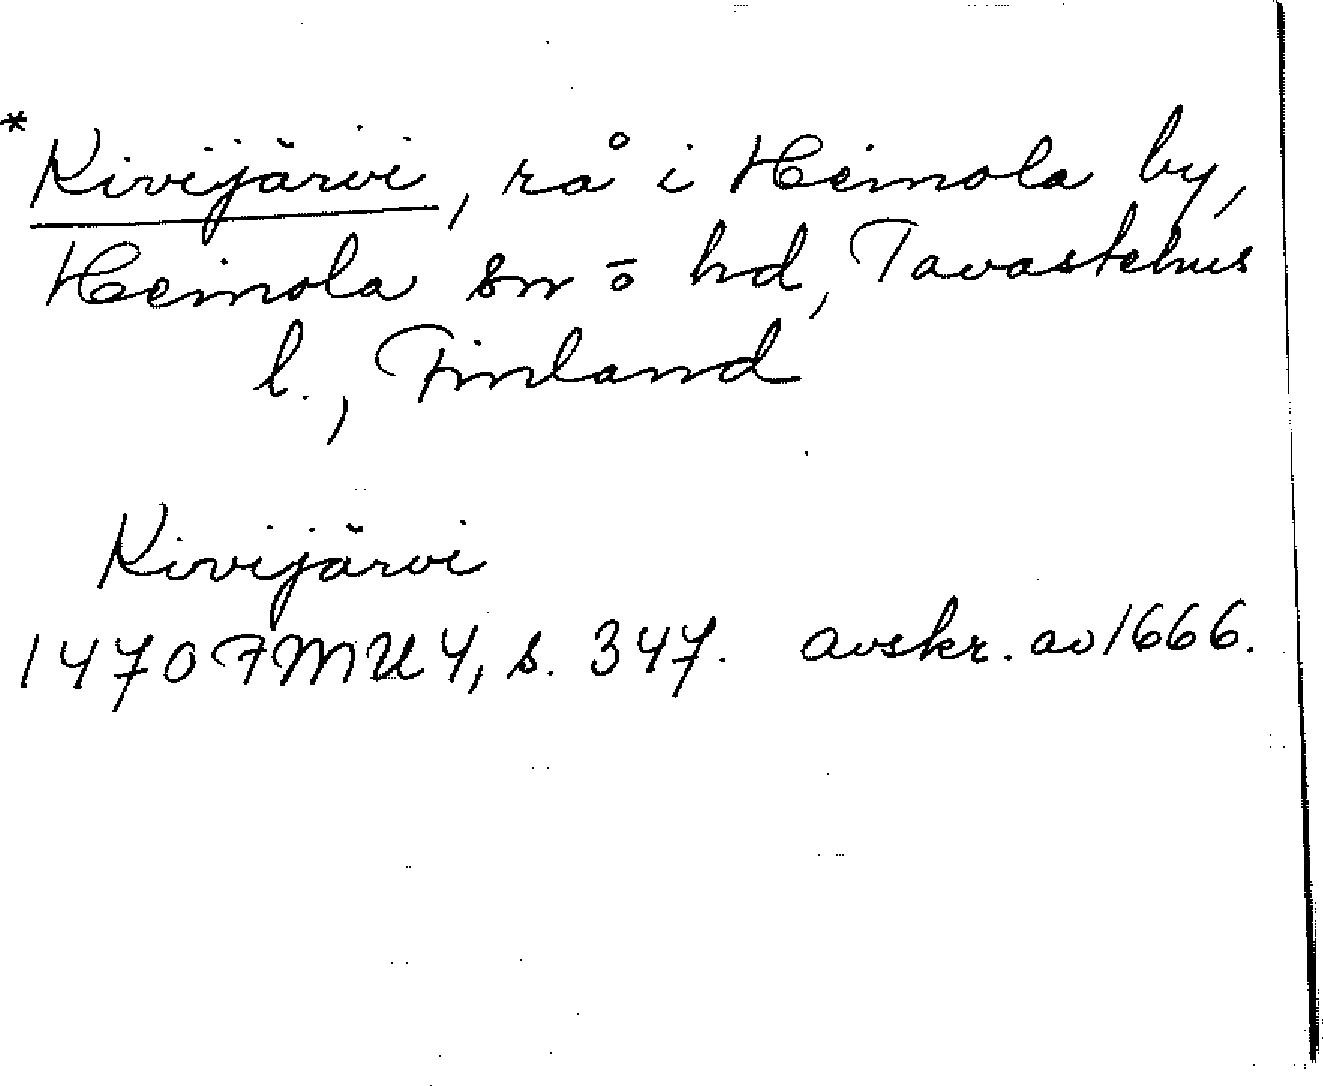 *Kivijärvi, rå i Heinola by,
Heinola sn o hd, Tavastehus
l., Finland
Kivijärvi
1470 FMU 4, s. 347. avskr. av 1666.